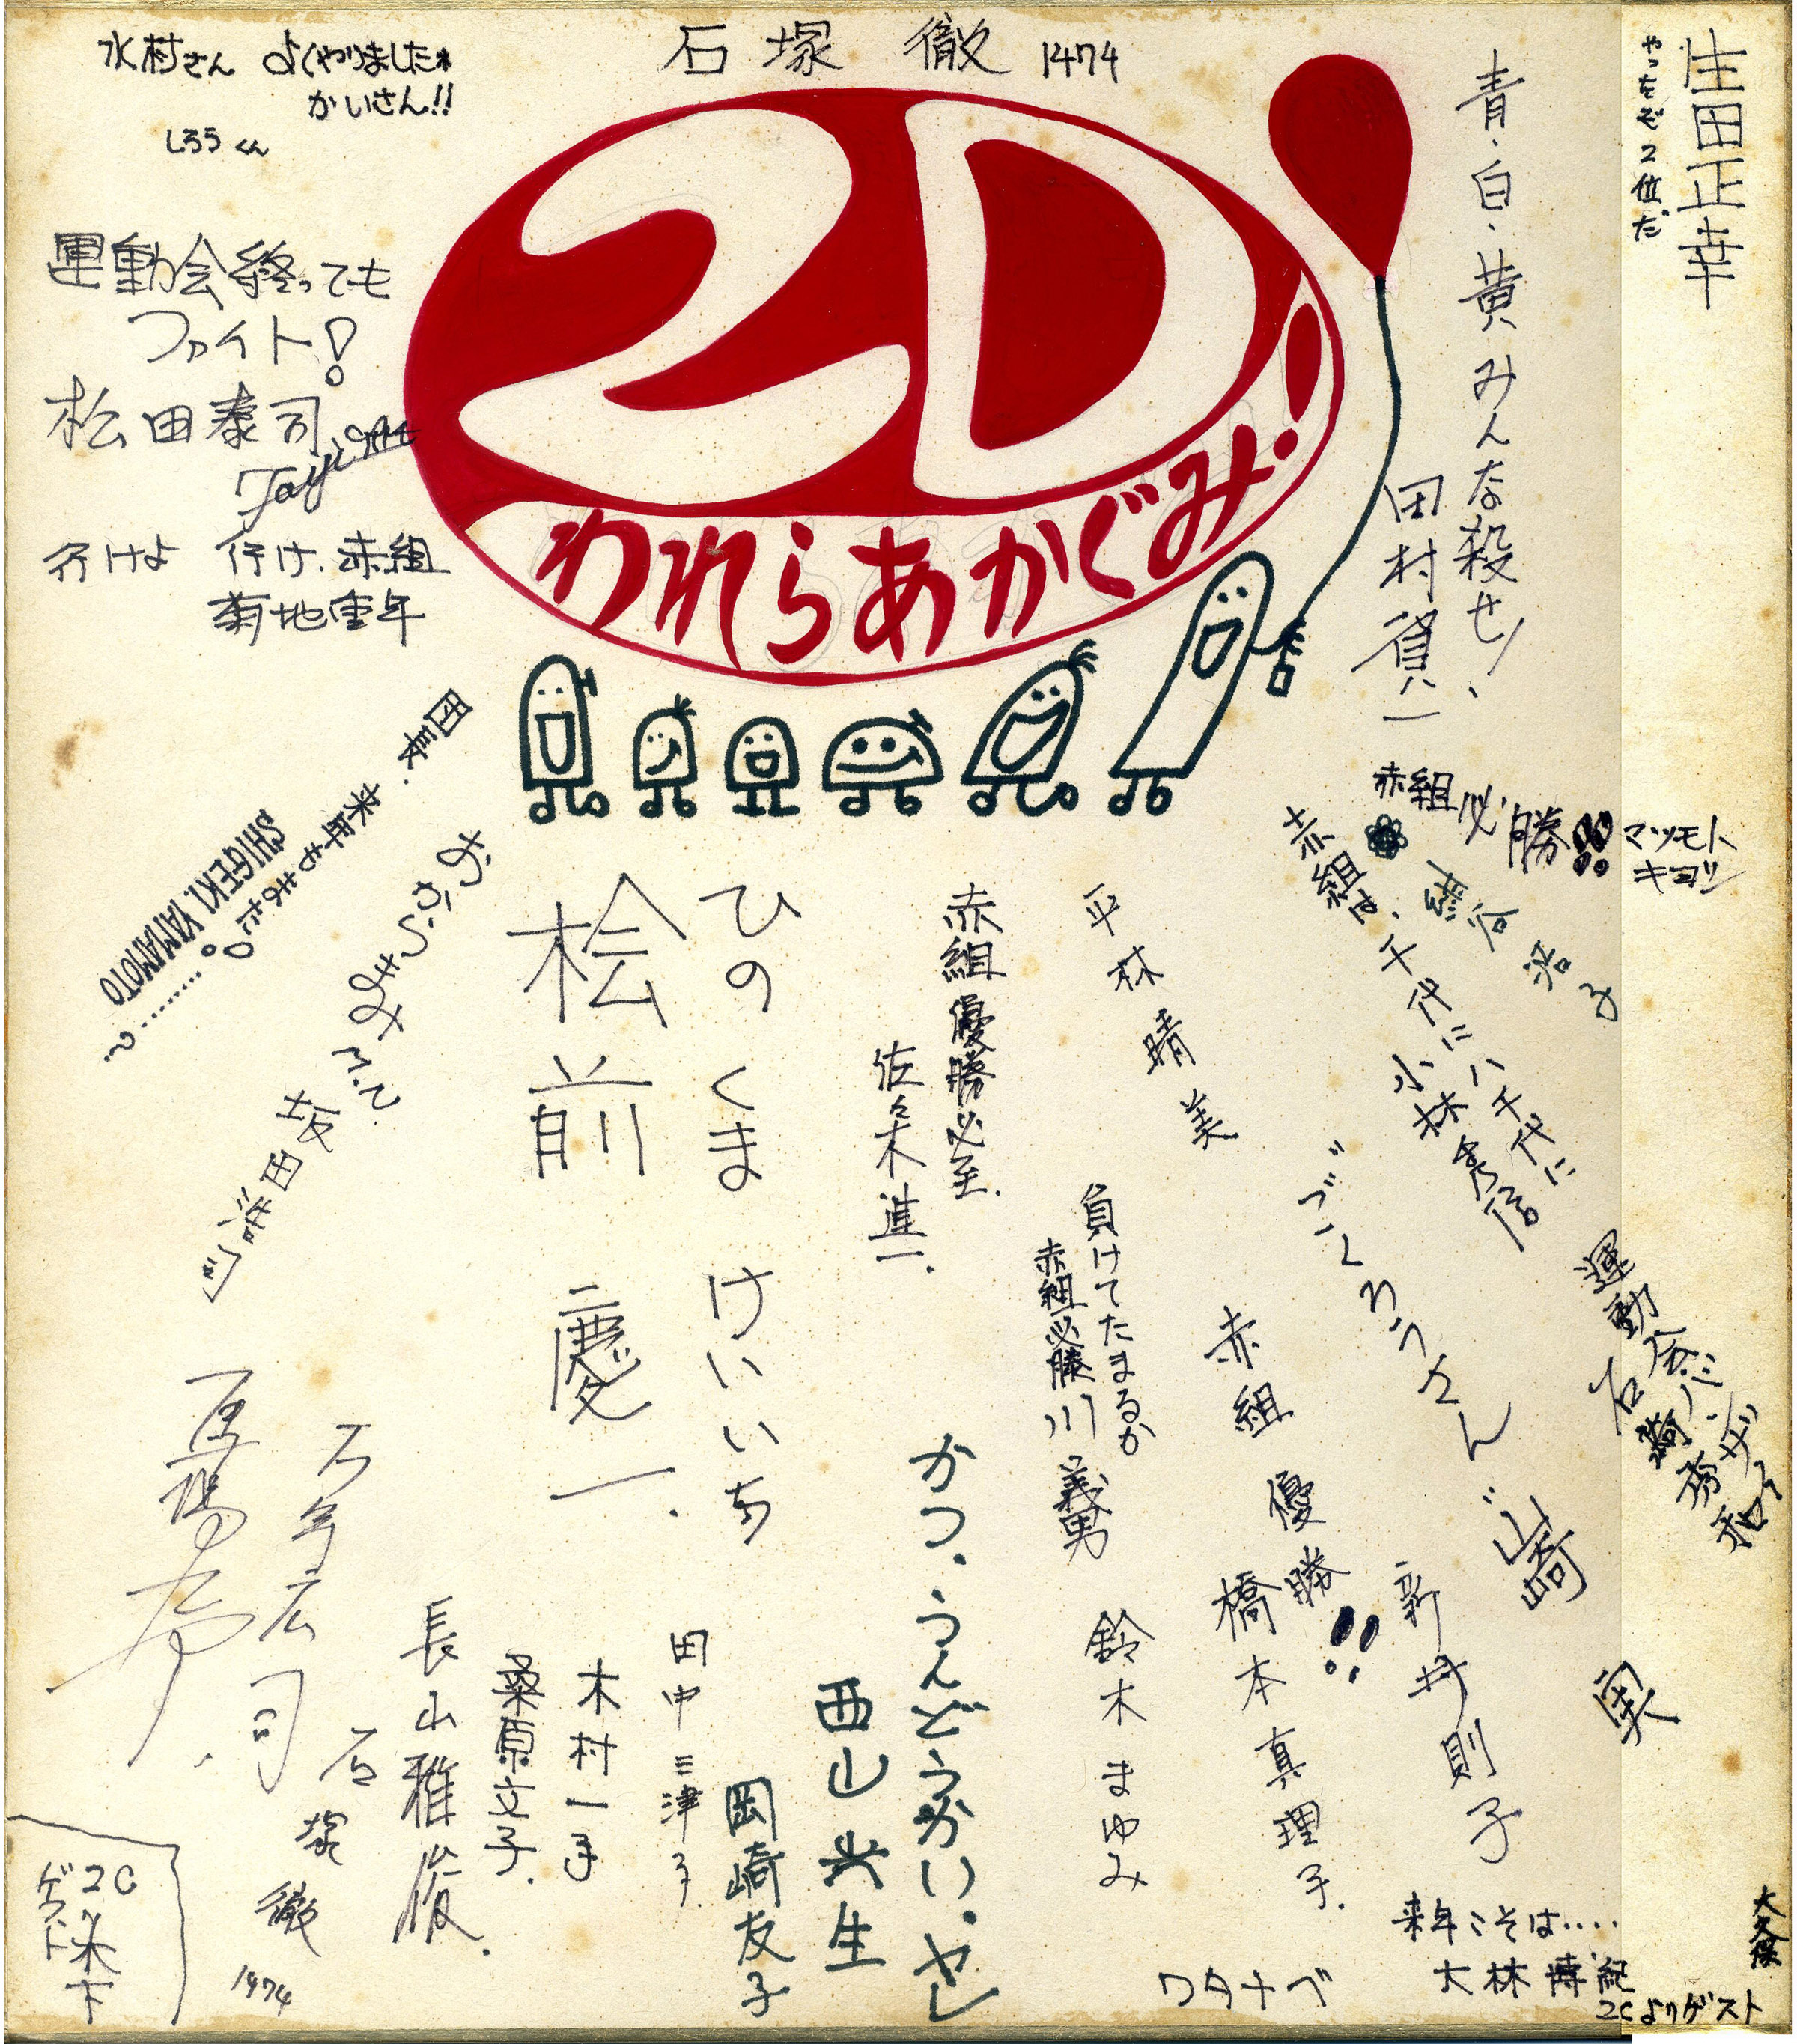 石塚 徹 1474
水村さん よくやりましたね
かいさん!!
しろうくん
生田正幸
やったぞ2位だ
2D!
われらあかぐみ!
青・白・黄みんな殺せ!
田村
運動会終っても
ファイト!
松田泰司
行けよ 行け、赤組
菊地
団長、来年もまた!
SHIGEKI YAMAMOTO
.........?
坂田浩
赤組必勝!!
マツモト
キヨシ
赤組は、千代に八千代に
小林秀信
浩子
平林晴美
赤組優勝必至.
佐々木進一.
ひのくま けいいち
桧前 慶一.
負けてたまるか
赤組必勝 川 義男
"ごくろうさん"
山崎
実
運動会バンザイ
石崎秀和
赤組 優勝!!
橋本真理子.
新井則子
鈴木まゆみ
かつ、うんどうかい、ヤレ
西山 生
岡崎友子
田中三津子.
木村
桑原文子.
長山雅俊.
石塚 徹
1974
広司
2C
ゲスト 木下
ワタナベ
来年こそは....
大林博紀
2Cよりゲスト
大久保